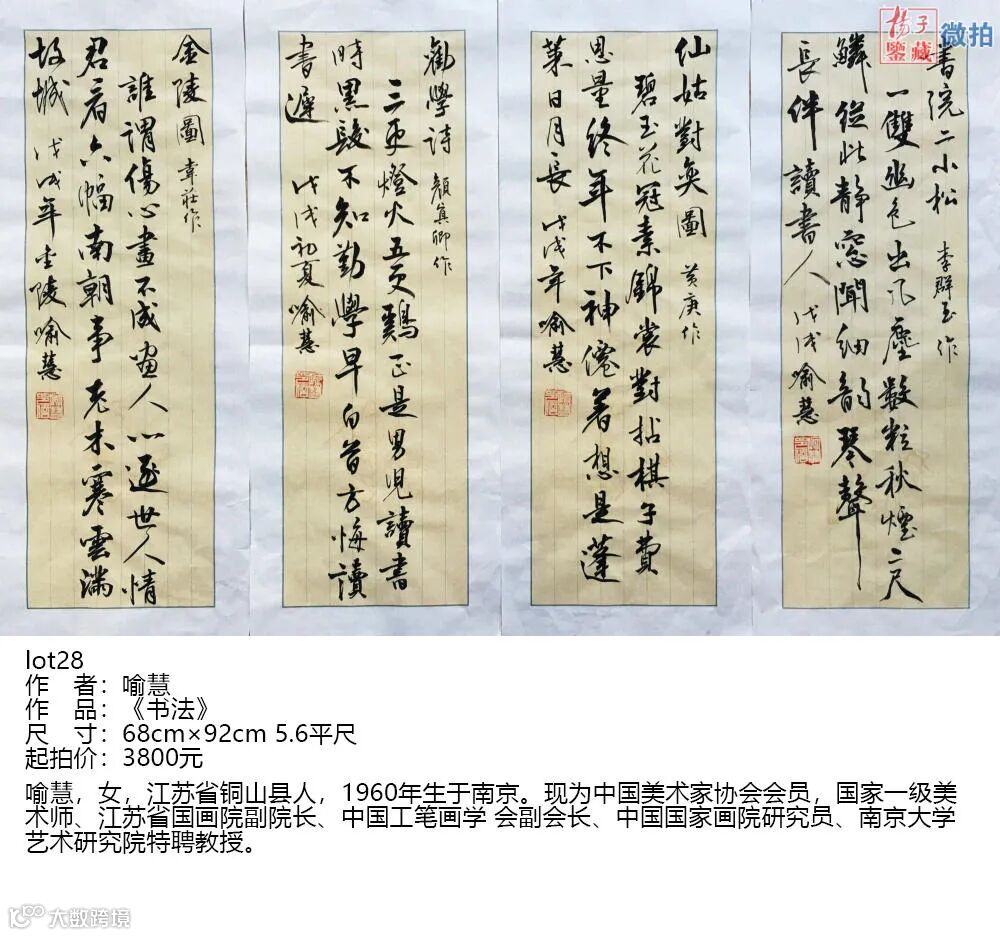 杨子
鉴藏
微拍
書院二小松 李群玉作
一雙幽色出凡塵數粒秋煙二尺
鱗從此靜窓聞細韵琴聲
長伴讀書人 戊戌喻慧
仙姑對奕圖 黄庚作
碧玉花冠素錦裳對拈棋子費
思量終年不下神僊著想是蓬
萊日月長 戊戌年喻慧
勸學詩 顏真卿作
三更燈火五更鷄正是男兒讀書
時黑髮不知勤學早白首方悔讀
書遲 戊戌初夏喻慧
金陵圖 韋莊作
誰謂傷心畫不成畫人心逐世人情
君看六幅南朝事老木寒雲滿
故城 戊戌年金陵喻慧
lot28
作 者：喻慧
作 品：《书法》
尺 寸：68cm×92cm 5.6平尺
起拍价：3800元
喻慧，女，江苏省铜山县人，1960年生于南京。现为中国美术家协会会员，国家一级美
术师、江苏省国画院副院长、中国工笔画学 会副会长、中国国家画院研究员、南京大学
艺术研究院特聘教授。
大数跨境